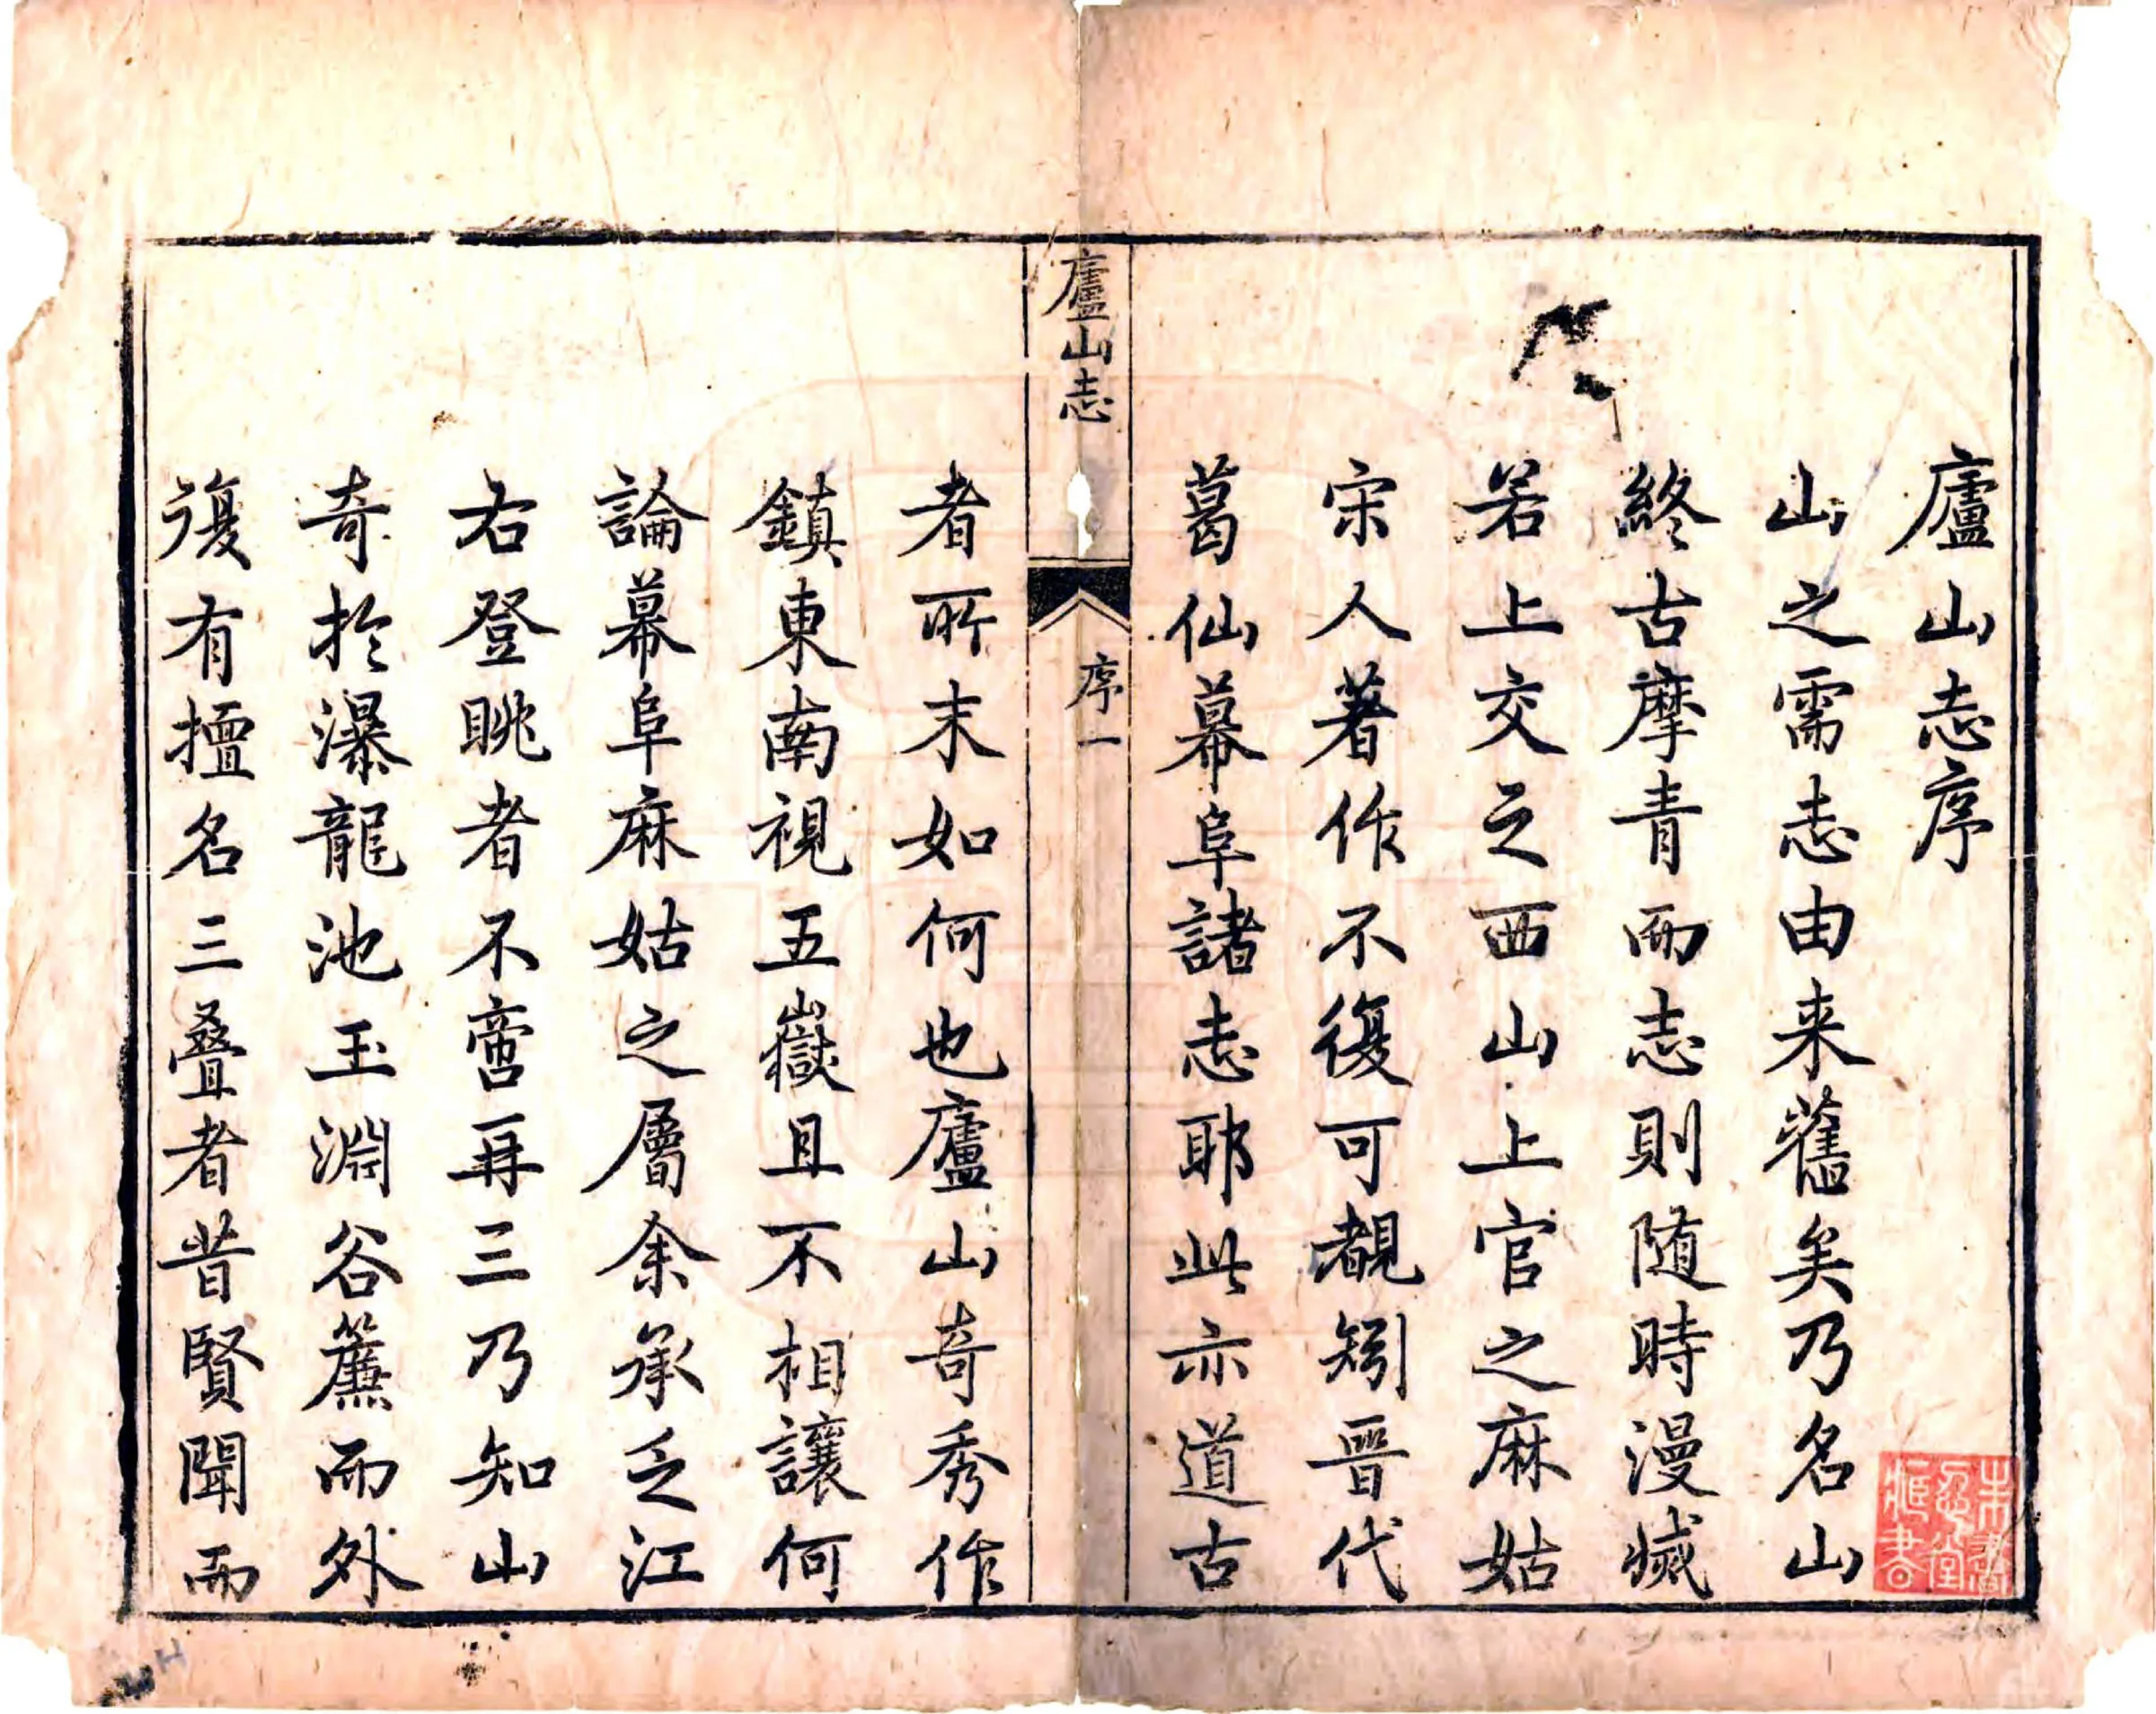 廬山志序
山之需志由来舊矣乃名山
終古摩青而志則随時漫滅
若上交之西山上官之麻姑
宋人著作不復可覩矧晉代
葛仙幕阜諸志耶此亦道古
廬山志
序一
者所末如何也廬山奇秀作
鎮東南視五嶽且不相讓何
論幕阜麻姑之層余承乏江
右登眺者不啻再三乃知山
奇於瀑龍池玉淵谷簾而外
復有擅名三疊者昔賢聞而